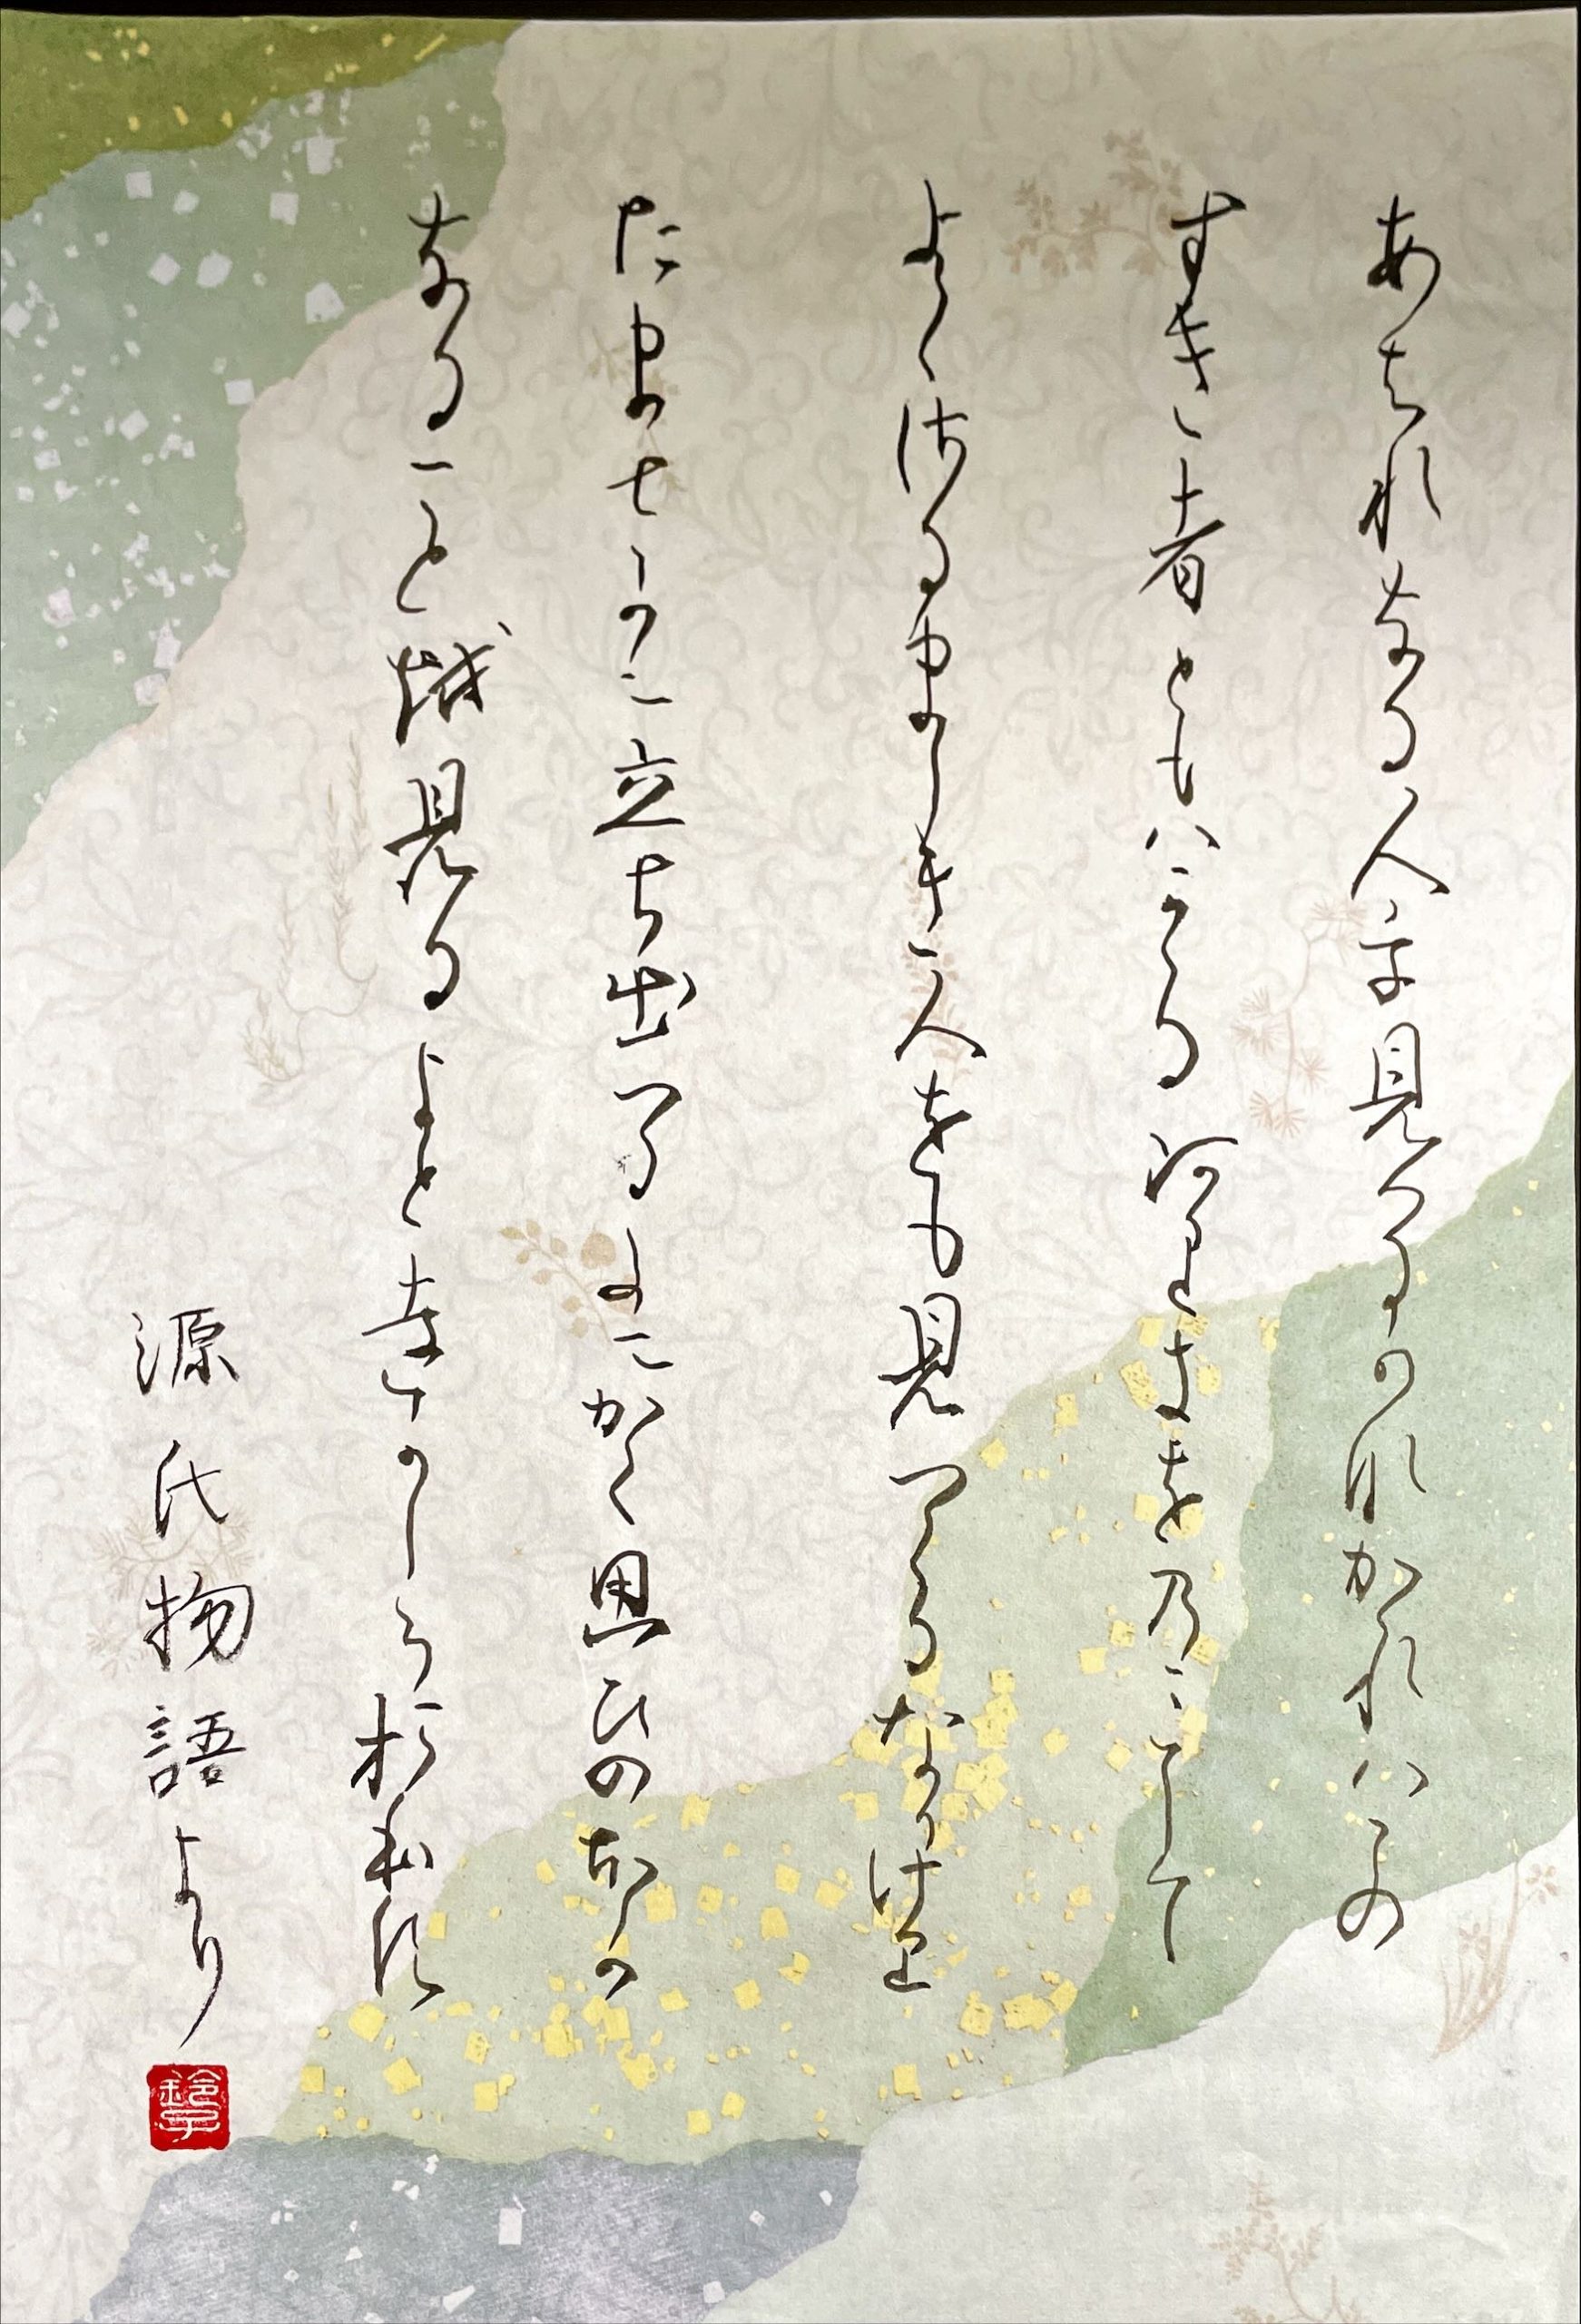 あはれなる人を見つるかなかゝれハこの
すき者ともハかゝるありきをのみして
よくさるましき人をも見つくるなりけり
たまさかに立ち出つるたにかく思ひのほか
なることを見るよとをかしうおほす
源氏物語より